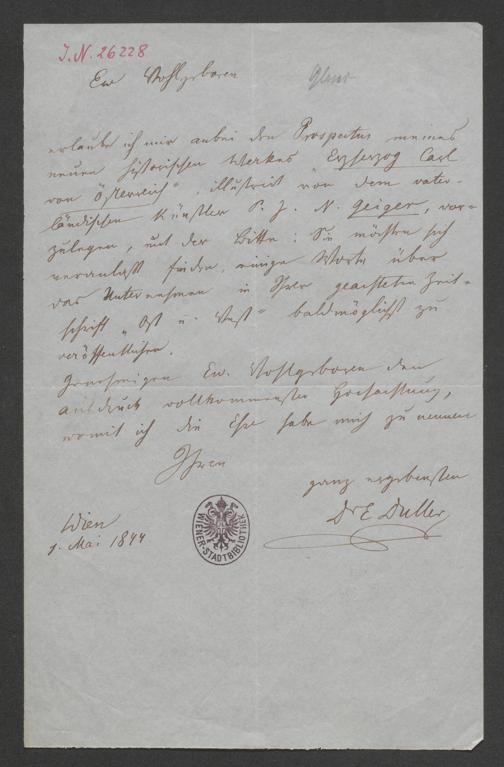 I.N. 26228
Ew Wohlgeboren
erlaube ich mir anbei den Prospectus meines
neuen historischen Werkes Erzherzog Carl
von Österreich", illustrirt von dem vater-
ländischen Künstler P. J. N. Geiger, vor-
zulegen, mit der Bitte: Sie möchten sich
veranlaßt finden, einige Worte über
das Unternehmen in Ihrer geachteten Zeit-
schrift „Ost u. West" baldmöglichst zu
veröffentlichen.
Genehmigen Ew. Wohlgeboren den
Ausdruck vollkommenster Hochachtung,
womit ich die Ehre habe mich zu nennen
Ihren
ganz ergebensten
Dr E. Duller
Wien
1. Mai 1844
WIENER-STADTBIBLIOTHEK